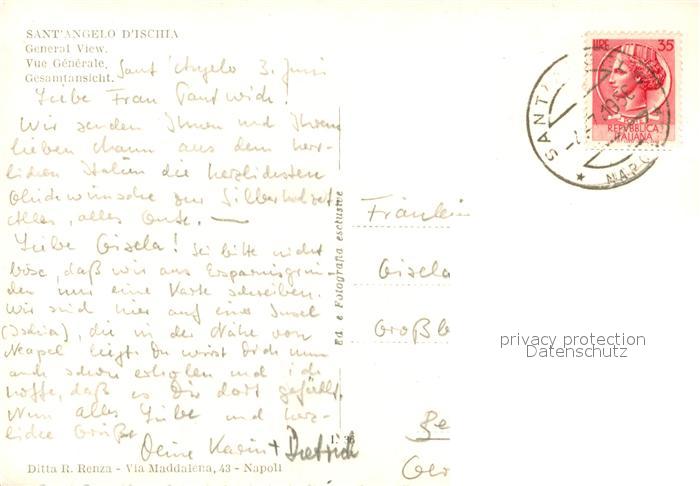 SANT'ANGELO D'ISCHIA
General View.
Vue Générale.
Gesamtansicht.
Sant'Angelo 3. Juni
Liebe Frau
Wir senden Ihnen und Ihrem
lieben Mann aus dem herr-
lichen Italien die herzlichsten
Glückwünsche zur Silberhochzeit
Alles, alles Gute. —
Liebe Gisela! Sei bitte nicht
böse, daß wir aus Ersparnisgrün-
den nur eine Karte schreiben.
Wir sind hier auf einer Insel
(Ischia), die in der Nähe von
Neapel liegt. Du wirst Dich nun
auch schön erholen und ich
hoffe, daß es Dir dort gefällt.
Nun alles Liebe und herz-
liche Grüße
Deine Karin + Dietrich
Ditta R. Renza - Via Maddalena, 43 - Napoli
Ed. e Fotografia esclusive
LIRE 35
REPVBBLICA
ITALIANA
SANT
Fräulein
Gisela
Großb
Ge
Ger
privacy protection
Datenschutz